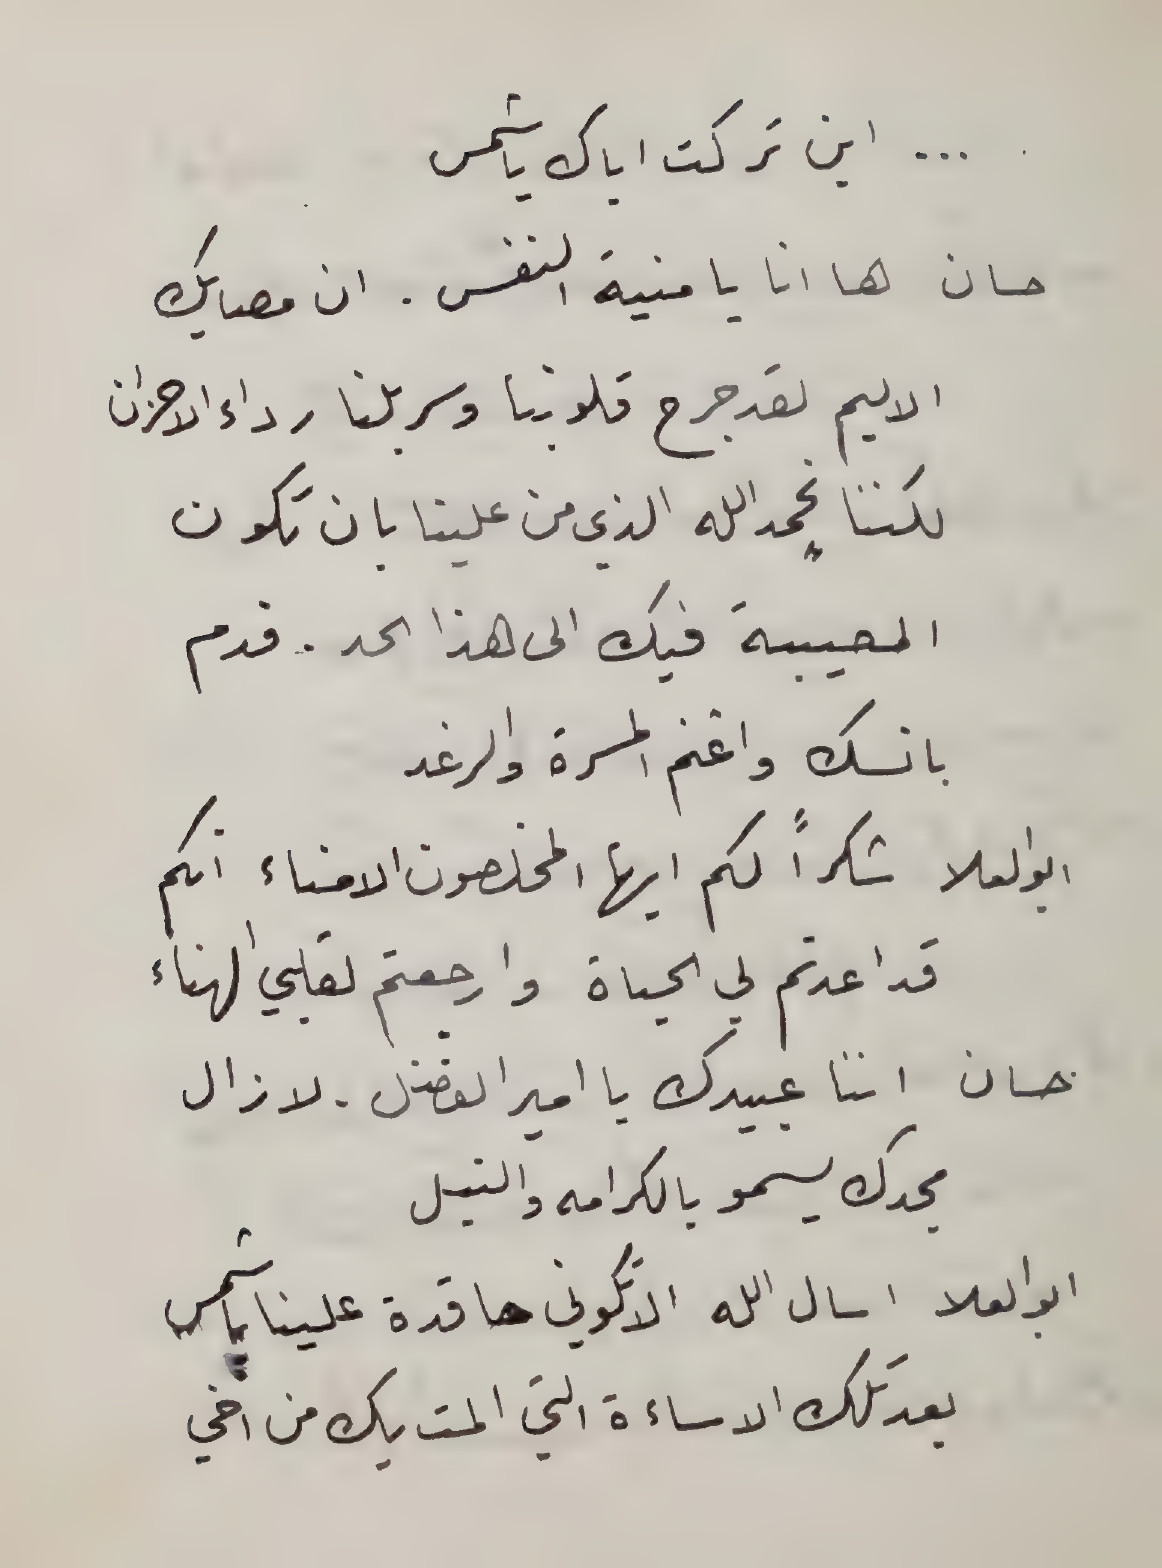 ... اين تركت اباك يا شمس
حسان ها انا يا منية النفس . ان مصابك
الاليم لقد جرح قلوبنا وسربلنا رداء الاحزان
لكننا نحمد الله الذي من علينا بان تكون
المصيبة فيك الى هذا الحد . قدم
بانسك واغنم المسرة والرغد
ابو العلا شكراً لكم ايها المخلصون الامناء انكم
قد اعدتم لي الحياة وارجعتم لقلبي الهناء
حسان اننا عبيدك يا امير الفضل . لا زال
مجدك يسمو بالكرامه والنبل
ابو العلا اسال الله الا تكوني حاقدة علينا يا شمس
بعد تلك الاساءة التي المت بك من اخي